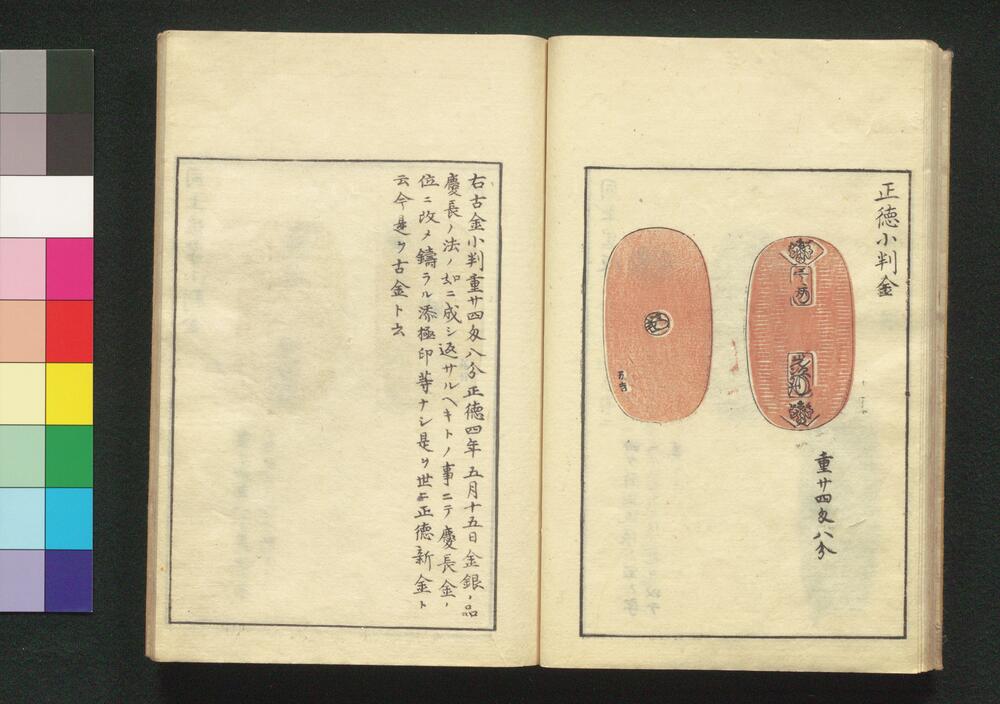 正徳小判金
重廿四匁八分
右古金小判重廿四匁八分正徳四年五月十五日金銀ノ品
慶長ノ法ノ如ニ成シ返サルヘキトノ事ニテ慶長金ノ
位ニ改メ鑄ラル添極印等ナシ是ヲ世ニ正徳新金ト
云今是ヲ古金ト云